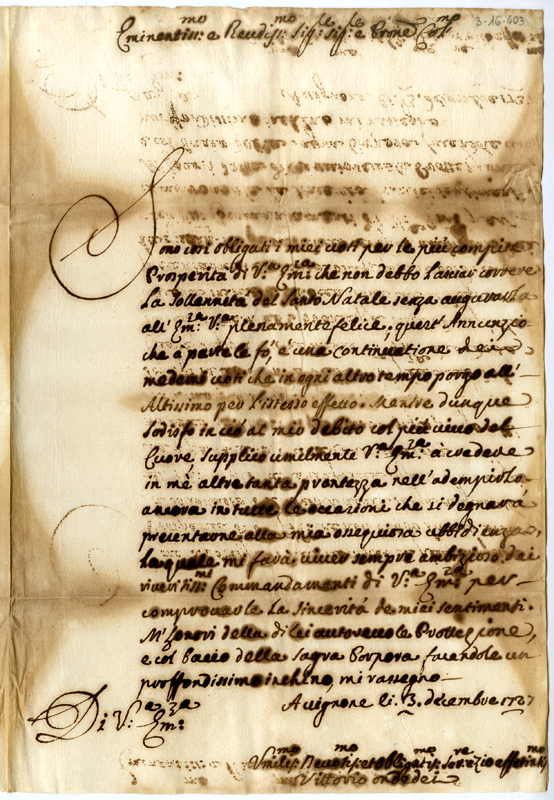 3-16-403
Eminentiss:mo e Reudiss:mo Sig:re Sig:re e Prone Col:mo
Sono cosi obligati i miei voti per le più compite
Prosperità di V:a Em:za che non debbo lasciar correre
la Sollennità del Santo Natale senza augurarla
all' Em:za V:ra plenamente felice; quest' Annunzio
che à parte le fò, è una continuatione dei
medemi voti che in ogni altro tempo porgo all'
Altissimo per l'istesso effetto. Mentre dunque
sodisfo in ciò al mio debito col più vivo del
Cuore, supplico umilmente V:a Em:za à credere
in mè altre tanta prontezza nell' adempirlo
ancora in tutte le occasioni che si degnarà
presentarne alla mia ossequiosa ubbidienza,
la quale mi farà viver sempre ambizioso dei
riveritiss:mi Commandamenti di V:a Em:za per
comprovarle la sincerità de miei sentimenti.
M' honori della di lei autorevole Prottezione,
e col Bacio della Sagra Porpora facendole un
proffondissimo inchino, mi rassegno
Avignone li. 3. decembre 1727
Di V:a Em:za
Vmiliss:mo Devotiss:mo et obligatiss:mo Ser:re
Vittorio ondedei